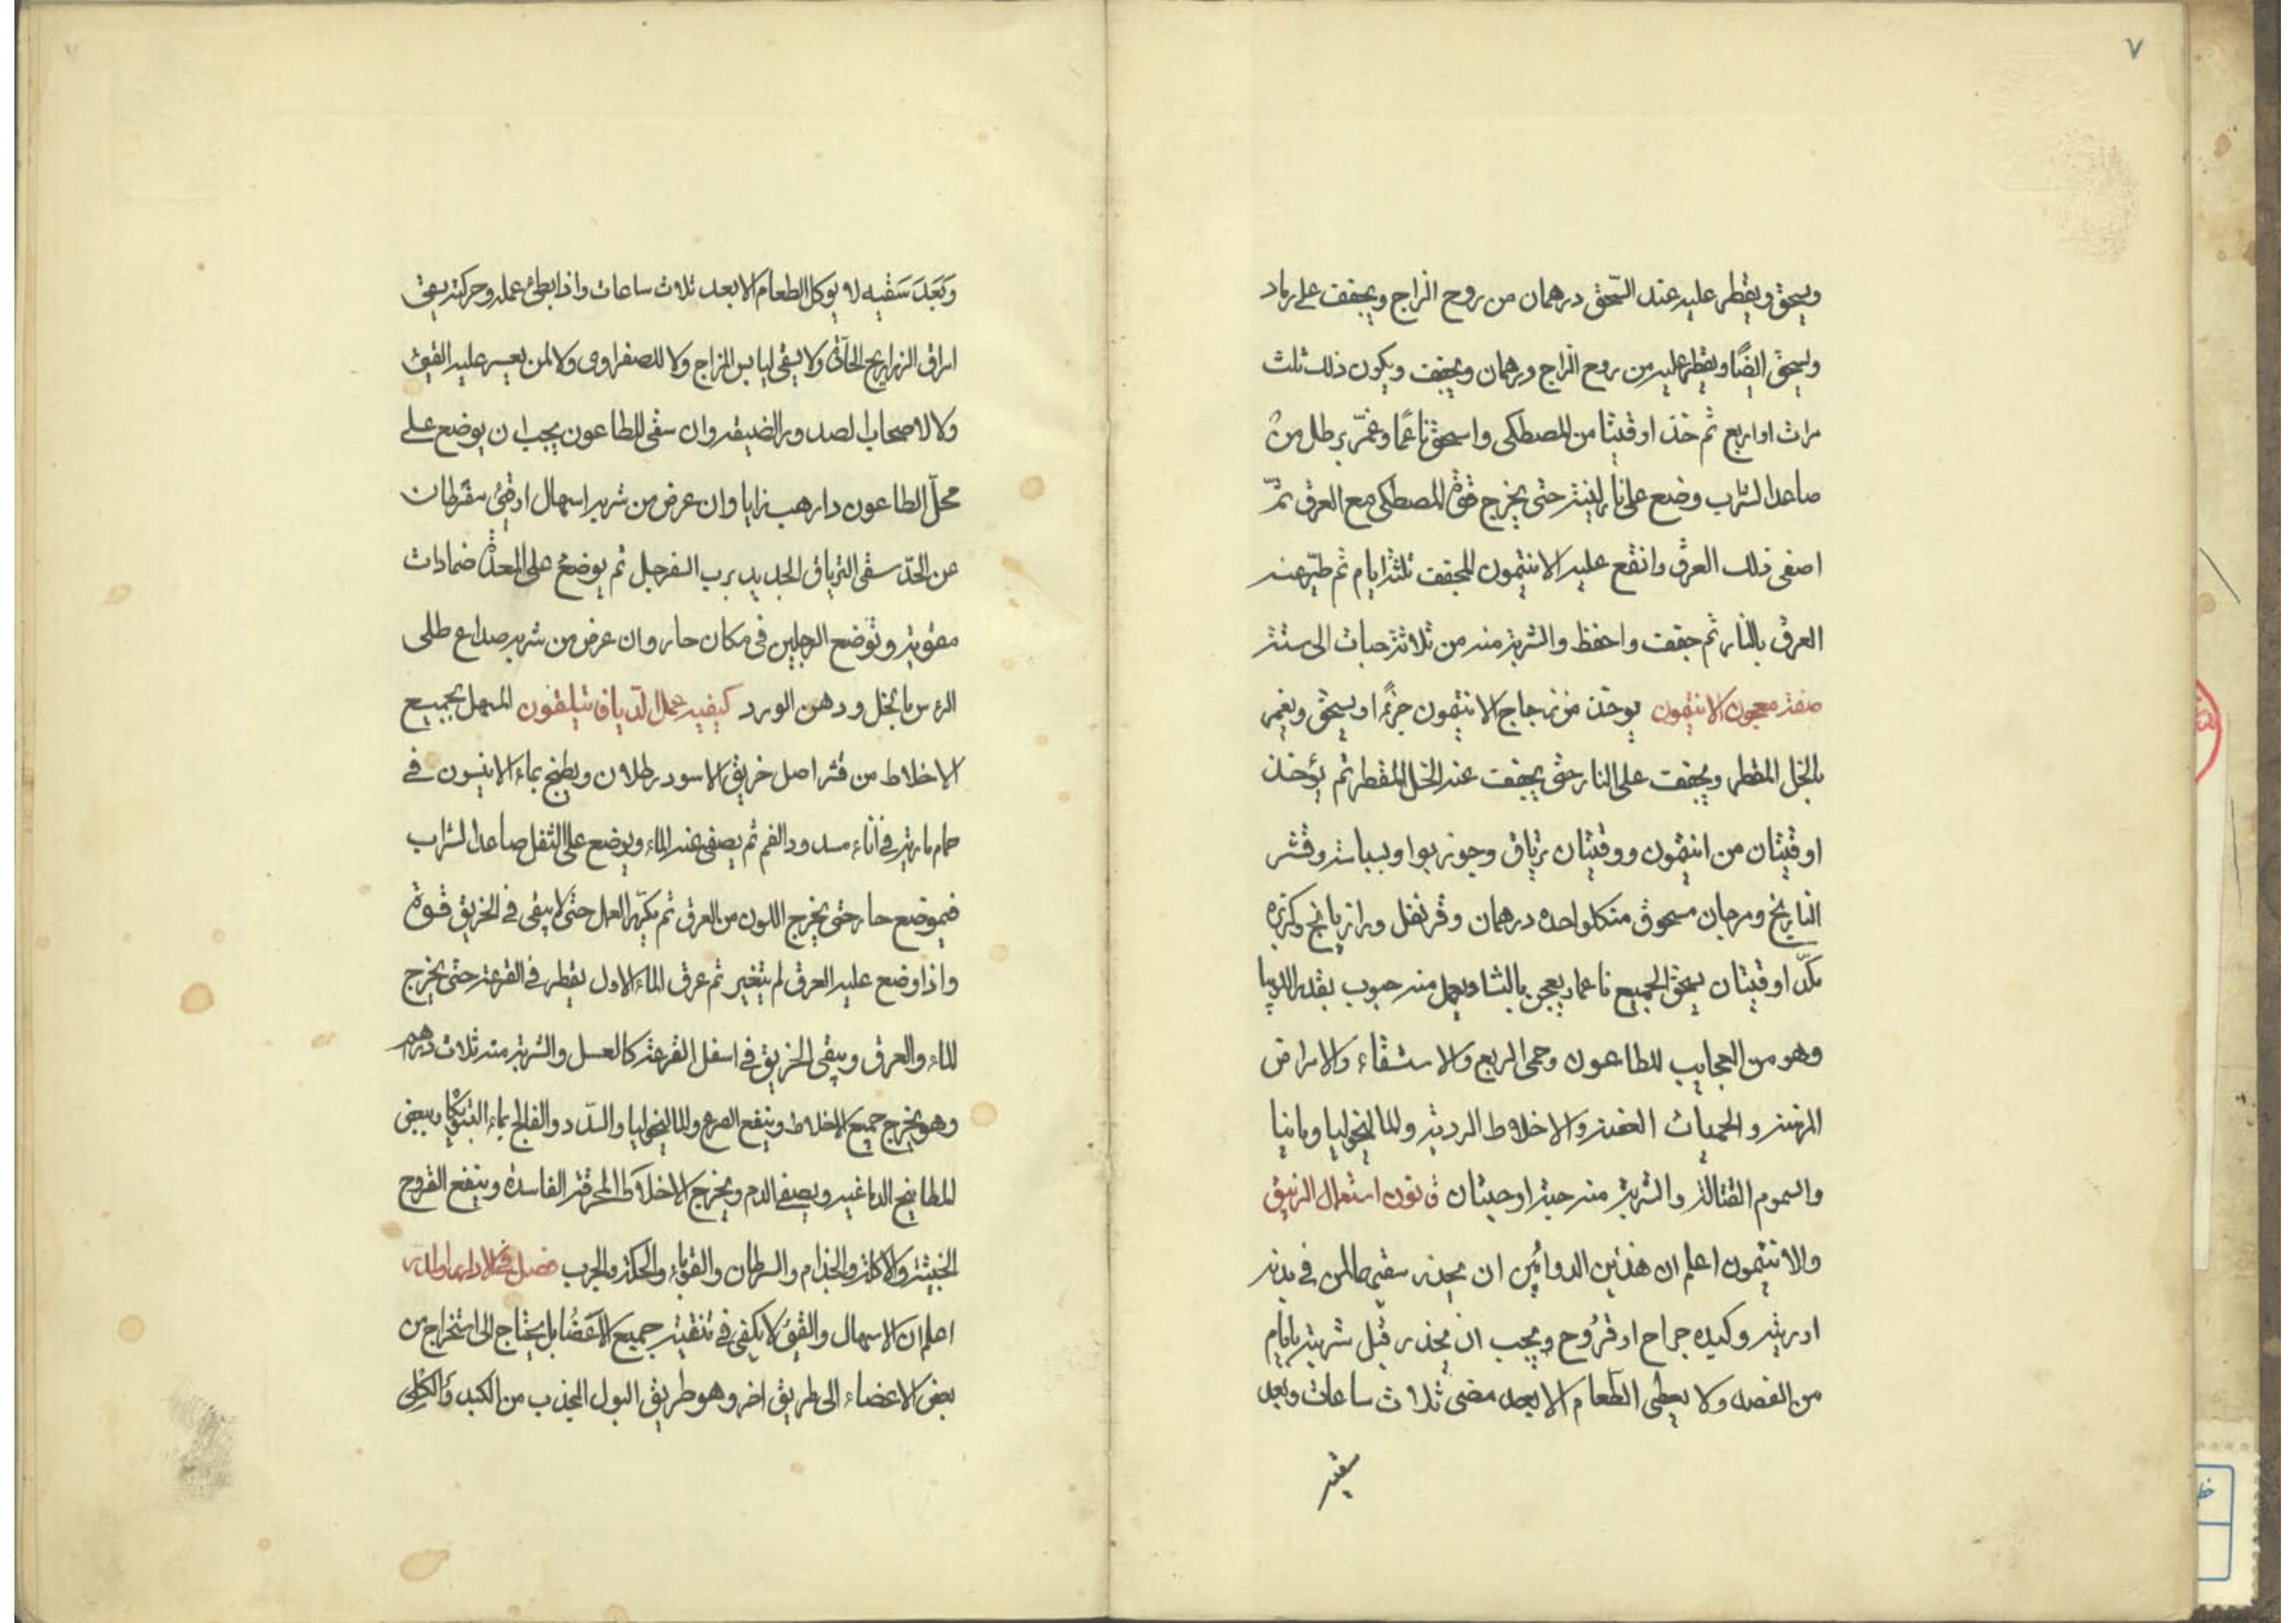 ٧
ويسحق ويقطر عليه عند السّحق درهمان من روح الزاج ويجفف على رماد
ويسحق ايضًا ويقطر عليه من روح الزاج درهمان ويجفف ويكون ذلك ثلث
مرات او اربع ثم خذ اوقيتا من المصطكى واسحق ناعمًا وغمّر برطل من
صاعد الشراب وضع على نار لينة حتى يخرج قوة المصطكى مع العرق ثمّ
اصفى ذلك العرق وانقع عليه الانتيمون المجفف ثلثة ايام ثم طيّر عنه
العرق بالنار ثم جفف واحفظ والشربة منه من ثلاثة حبات الى ستة
صفة معجون الانتيمون يوخذ من زجاج الانتيمون جزًا ويسحق ويغمر
بالخل المقطر ويجفف على النار حتى يجفف عنه الخل المقطر ثم يؤخذ
اوقيتان من انتيمون ووقيتان ترياق وجوز بوا وبسباسة وقشر
النارنج ومرجان مسحوق من كلواحد درهمان وقرنفل ورازيانج وكزبره
اوقيتان يسحق الجميع ناعما ويعجن بالنشا ويعمل منه حبوب بقدر
وهو من العجايب للطاعون وحمى الربع والاستسقاء والامراض
المزمنة والحميات العفنة والاخلاط الردية والماليخوليا ومانيا
والسموم القتالة والشربة منه حبة او حبتان قانون استعمال الزيبق
والانتيمون اعلم ان هذين الدوائين ان يحذر سقيهما لمن في بدنه
او ريته وكبده جراح او قروح ويجب ان يحذر قبل شربته بايام
من الفصد ولا يعطى الطعام الا بعد مضى ثلاث ساعات وبعد
سقيه
وبَعَدَ سَقيه لا يوكل الطعام الا بعد ثلاث ساعات واذا ابطئ عمله وحركته يسقى
امراق الزراريج ولا يسقى ليابس المزاج ولا للصفراوى ولا لمن يعسر عليه القيئ
ولا لاصحاب الصدور الضيقة وان سقى للطاعون يجب ان يوضع على
محلّ الطاعون دارهب زايا وان عرض من شربه اسهال او قئ مفرطان
عن الحدّ سقى الترياق الجديد برب السفرجل ثم يوضع على المعدة ضمادات
مقوية وتوضع الرجلين في مكان حار وان عرض من شربه صداع طلى
الرس بالخل ودهن الورد كيفية عمال الترياق تيلقون المسهل بجميع
الاخلاط من قشر اصل خربق الاسود رطلان ويطبخ بماء الانيسون في
حمام مارية في اناء مسدود الفم ثم يصفى عنه الماء ويوضع على الثفل صاعد الشراب
في موضع حار حتى يخرج اللون من العرق ثم يكرّر العمل حتى لا يبقى في الخربق قوة
واذا وضع عليه العرق لم يتغير ثم عرق الماء الاول يقطر في القرعة حتى يخرج
الماء والعرق ويبقى الخربق في اسفل القرعة كالعسل والشربة منه ثلاث دراهم
وهو يخرج جميع الاخلاط وينفع الصرع والماليخوليا والسّدد والفالج بماء وببعض
المطابيخ الدماغية ويصفى الدم ويخرج الاخلاط المحرقة الفاسدة وينفع القروح
الخبيثة والاكلة والجذام والسرطان والقوباء والحكة والجرب فصل في الادوية المدرة
اعلم ان الاسهال والقئ لا يكفى في تنقية جميع الاعضا بل يحتاج الى استخراج من
بعض الاعضاء الى طريق اخر وهو طريق البول المجذب من الكبد والكلى